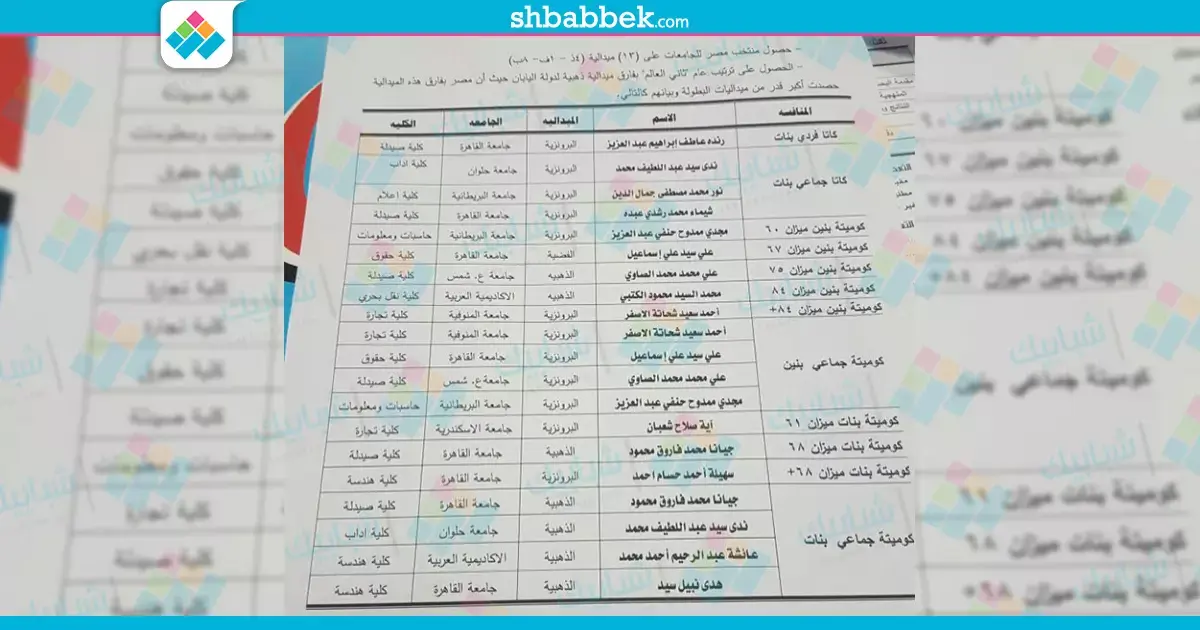 shbabbek.com
- حصول منتخب مصر للجامعات على (١٣) ميدالية (٤ذ - ١ف- ٨ب)
- الحصول على ترتيب عام "ثاني العالم" بفارق ميدالية ذهبية لدولة اليابان حيث أن مصر بفارق هذه الميدالية
حصدت أكبر قدر من ميداليات البطولة وبيانهم كالتالي.
المنافسه الاسم الميداليه الجامعه الكليه
كاتا فردي بنات رنده عاطف إبراهيم عبد العزيز البرونزية جامعة القاهرة كلية صيدلة
كاتا جماعي بنات ندى سيد عبد اللطيف محمد البرونزية جامعة حلوان كلية اداب
نور محمد مصطفى جمال الدين البرونزية جامعة البريطانية كلية اعلام
شيماء محمد رشدي عبده البرونزية جامعة القاهرة كلية صيدلة
كوميتة بنين ميزان ٦٠ مجدي ممدوح حنفي عبد العزيز البرونزية جامعة البريطانية حاسبات ومعلومات
كوميتة بنين ميزان ٦٧ علي سيد علي إسماعيل الفضية جامعة القاهرة كلية حقوق
كوميتة بنين ميزان ٧٥ علي محمد محمد الصاوي الذهبيه جامعة ع. شمس كلية صيدلة
كوميتة بنين ميزان ٨٤ محمد السيد محمود الكتبي الذهبيه الاكاديمية العربية كلية نقل بحري
كوميتة بنين ميزان ٨٤+ أحمد سعيد شحاتة الاسفر البرونزية جامعة المنوفية كلية تجارة
كوميتة جماعي بنين أحمد سعيد شحاتة الاسفر البرونزية جامعة المنوفية كلية تجارة
علي سيد علي إسماعيل البرونزية جامعة القاهرة كلية حقوق
علي محمد محمد الصاوي البرونزية جامعة ع. شمس كلية صيدلة
مجدي ممدوح حنفي عبد العزيز البرونزية جامعة البريطانية حاسبات ومعلومات
كوميتة بنات ميزان ٦١ آية صلاح شعبان البرونزية جامعة الاسكندرية كلية تجارة
كوميتة بنات ميزان ٦٨ جيانا محمد فاروق محمود الذهبية جامعة القاهرة كلية صيدلة
كوميتة بنات ميزان ٦٨+ سهيلة أحمد حسام احمد البرونزية جامعة القاهرة كلية هندسة
كوميتة جماعي بنات جيانا محمد فاروق محمود الذهبية جامعة القاهرة كلية صيدلة
ندى سيد عبد اللطيف محمد الذهبية جامعة حلوان كلية اداب
عائشة عبد الرحيم أحمد محمد الذهبية الاكاديمية العربية كلية هندسة
هدى نبيل سيد الذهبية جامعة القاهرة كلية هندسة